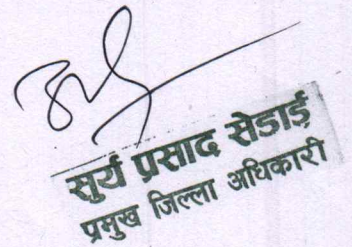 सुर्य प्रसाद सेडाई
प्रमुख जिल्ला अधिकारी